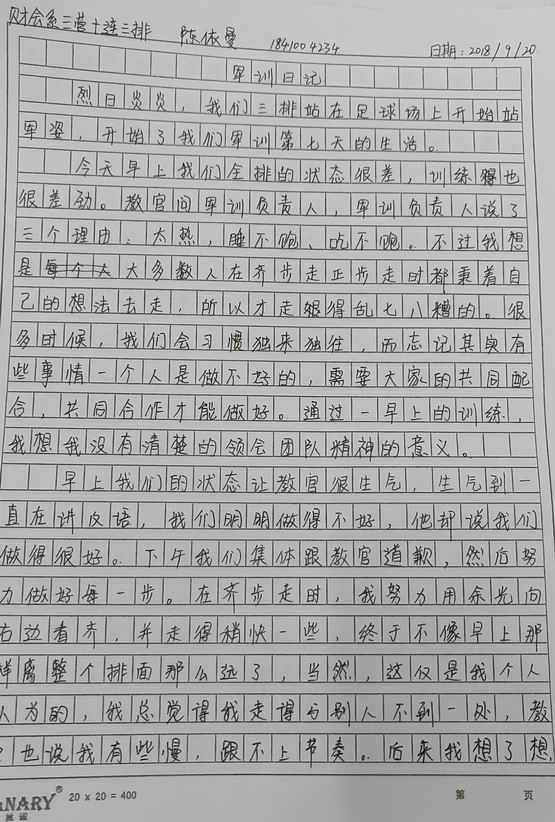 财会系三营十连三排 陈依曼 1841004234 日期:2018/9/20
军训日记
烈日炎炎,我们三排站在足球场上开始站
军姿,开始了我们军训第七天的生活。
今天早上我们全排的状态很差,训练得也
很差劲。教官问军训负责人,军训负责人说了
三个理由:太热,睡不饱、吃不饱。不过我想
是每个人大多数人在齐步走正步走时都秉着自
己的想法去走,所以才走很得乱七八糟的。很
多时候,我们会习惯独来独往,而忘记其实有
些事情一个人是做不好的,需要大家的共同配
合,共同合作才能做好。通过一早上的训练,
我想我没有清楚的领会团队精神的意义。
早上我们的状态让教官很生气,生气到一
直在讲反语,我们明明做得不好,他却说我们
做得很好。下午我们集体跟教官道歉,然后努
力做好每一步。在齐步走时,我努力用余光向
右边看齐,并走得稍快一些,终于不像早上那
样离整个排面那么远了,当然,这仅是我个人
认为的,我总觉得我走得与别人不到一处,教
也说我有些慢,跟不上节奏。后来我想了想,
NARY® 20 x 20 = 400 第 页